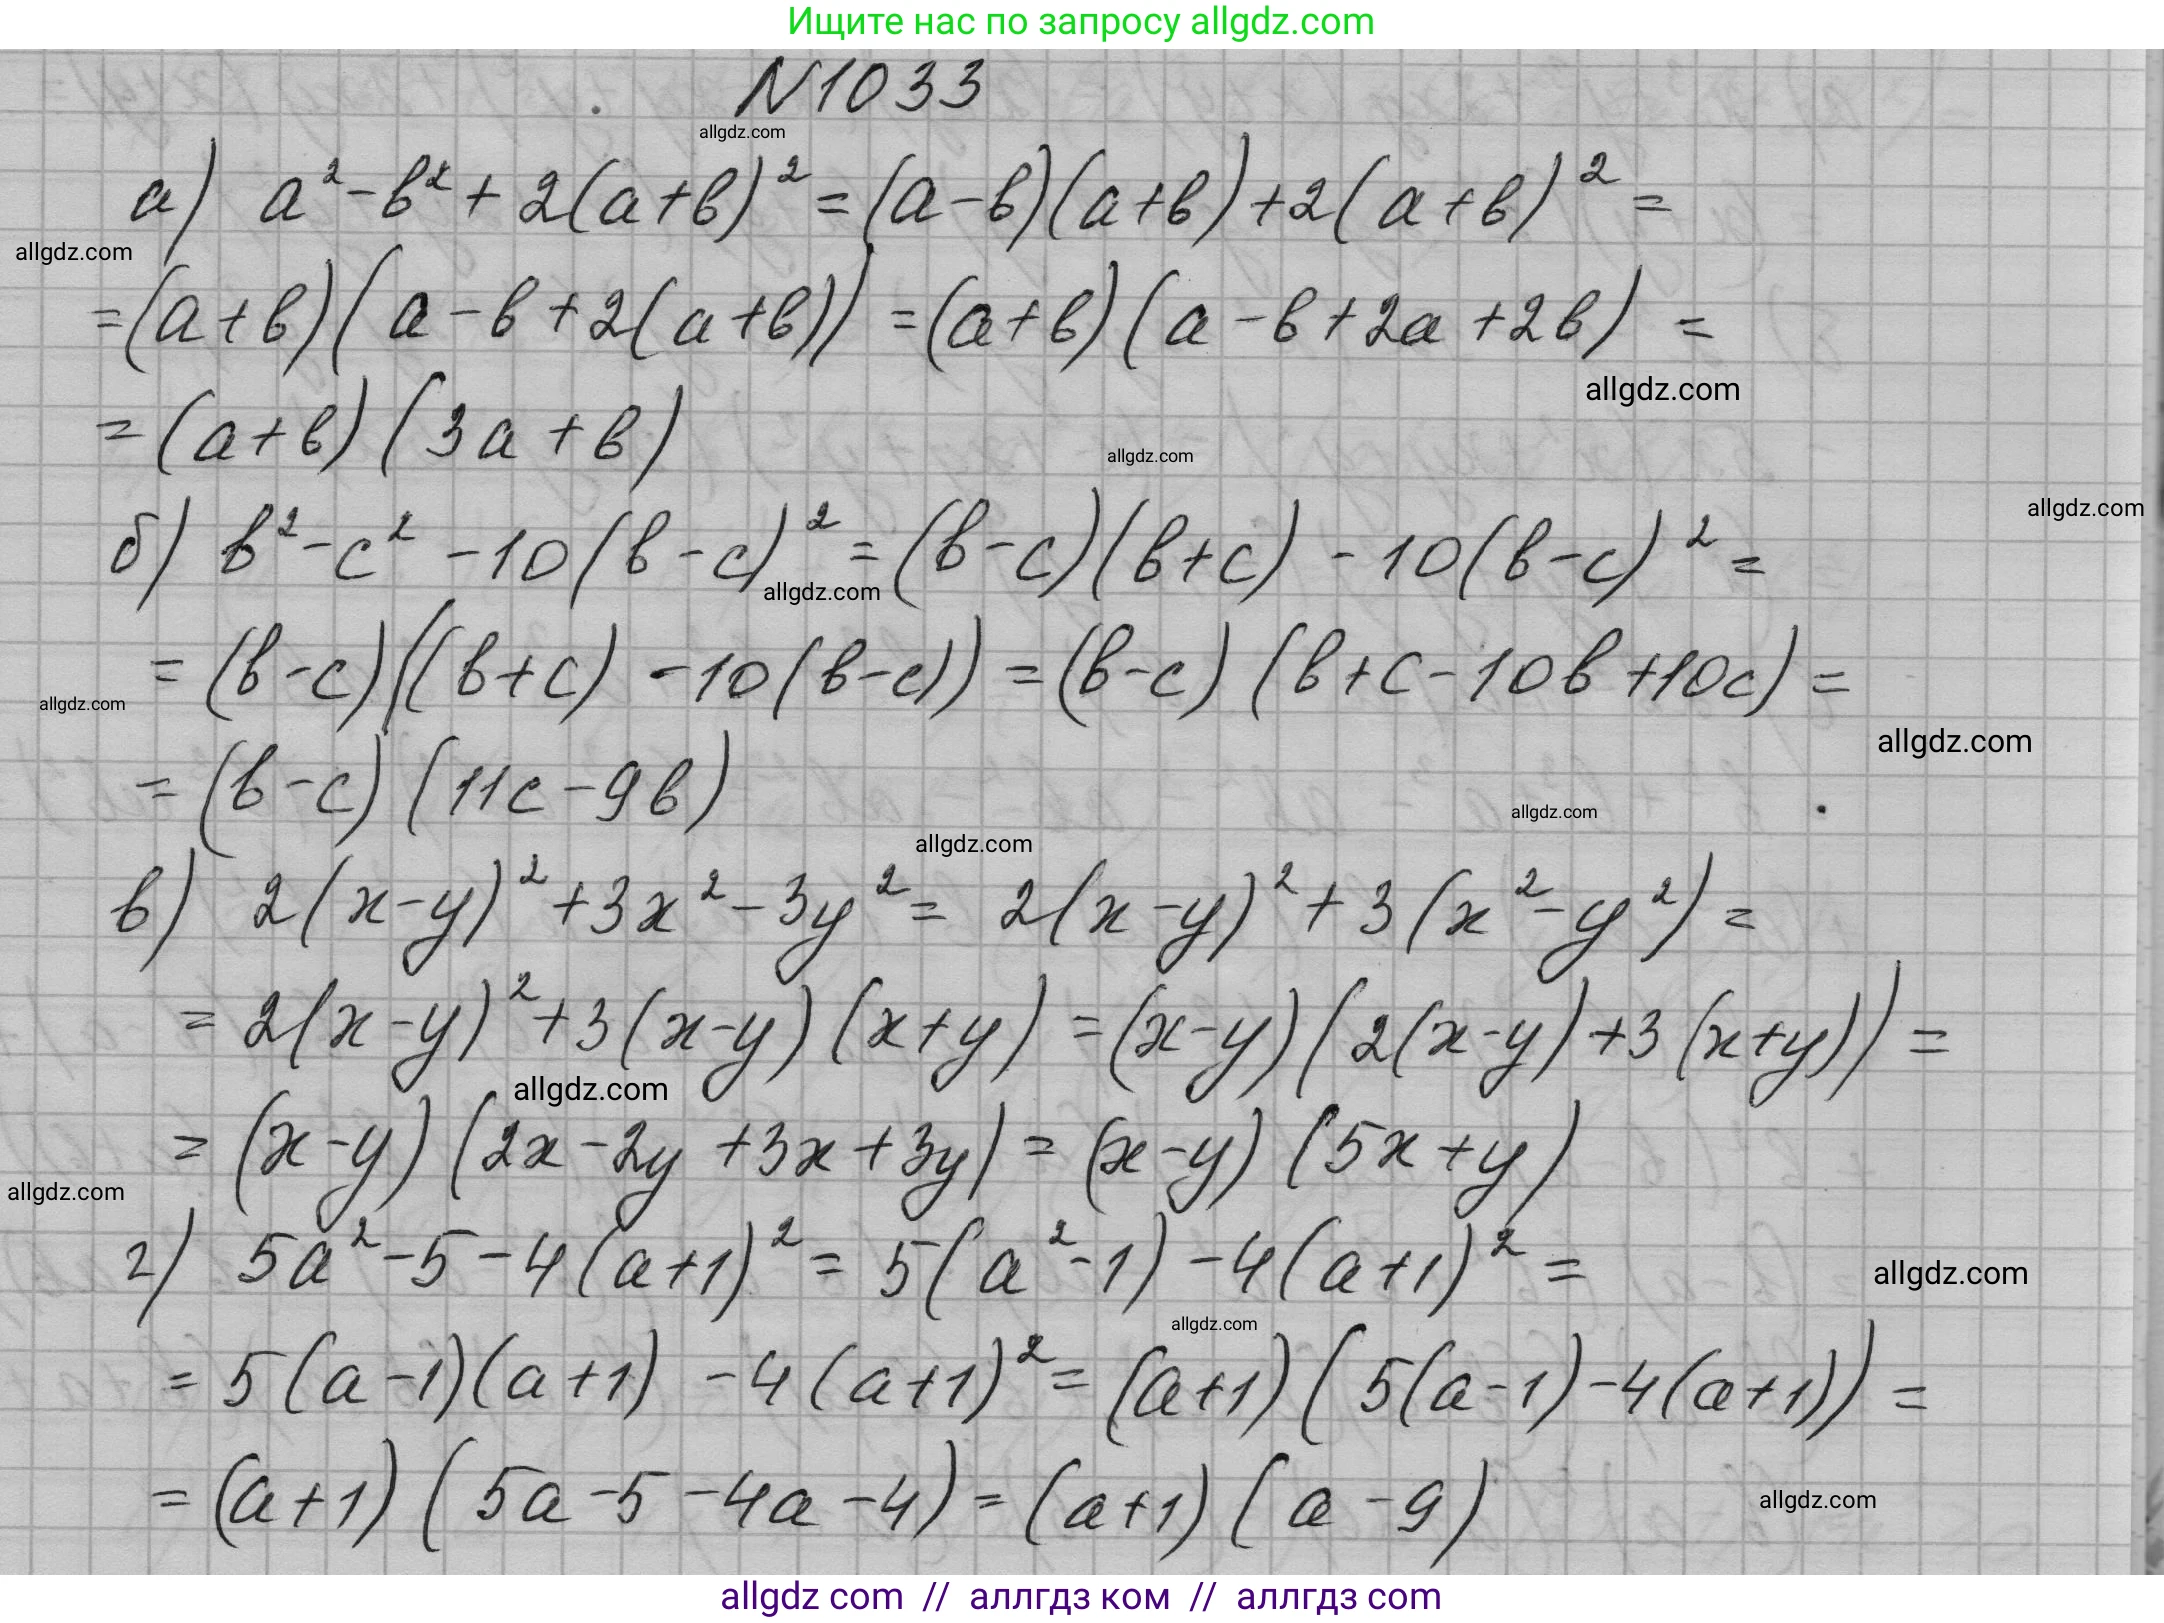 Ищите нас по запросу allgdz.com
N1033
allgdz.com
а) a² - b² + 2(a+b)² = (a-b)(a+b) + 2(a+b)² =
allgdz.com
= (a+b)(a-b+2(a+b)) = (a+b)(a-b+2a+2b) =
allgdz.com
= (a+b)(3a+b)
allgdz.com
allgdz.com
б) b² - c² - 10(b-c)² = (b-c)(b+c) - 10(b-c)² =
allgdz.com
= (b-c)((b+c) - 10(b-c)) = (b-c)(b+c-10b+10c) =
allgdz.com
allgdz.com
= (b-c)(11c-9b)
allgdz.com
allgdz.com
в) 2(x-y)² + 3x² - 3y² = 2(x-y)² + 3(x²-y²) =
= 2(x-y)² + 3(x-y)(x+y) = (x-y)(2(x-y)+3(x+y)) =
allgdz.com
= (x-y)(2x-2y+3x+3y) = (x-y)(5x+y)
allgdz.com
г) 5a² - 5 - 4(a+1)² = 5(a²-1) - 4(a+1)² =
allgdz.com
allgdz.com
= 5(a-1)(a+1) - 4(a+1)² = (a+1)(5(a-1)-4(a+1)) =
= (a+1)(5a-5-4a-4) = (a+1)(a-9)
allgdz.com
allgdz com // аллгдз ком // аллгдз com